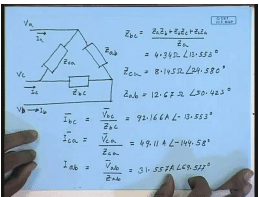 Va
Ia
Zca
Zab
Vc
Ic
Zbc
Vb
Ib
Zbc = ZaZb+ZbZc+ZcZa / Za
= 4.34Ω ∠13.553°
Zca = 8.145Ω ∠24.580°
Zab = 12.67Ω ∠30.423°
Ibc = Vbc / Zbc = 92.166A ∠-13.553°
Ica = Vca / Zca = 49.11A ∠-144.58°
Iab = Vab / Zab = 31.557A ∠89.577°